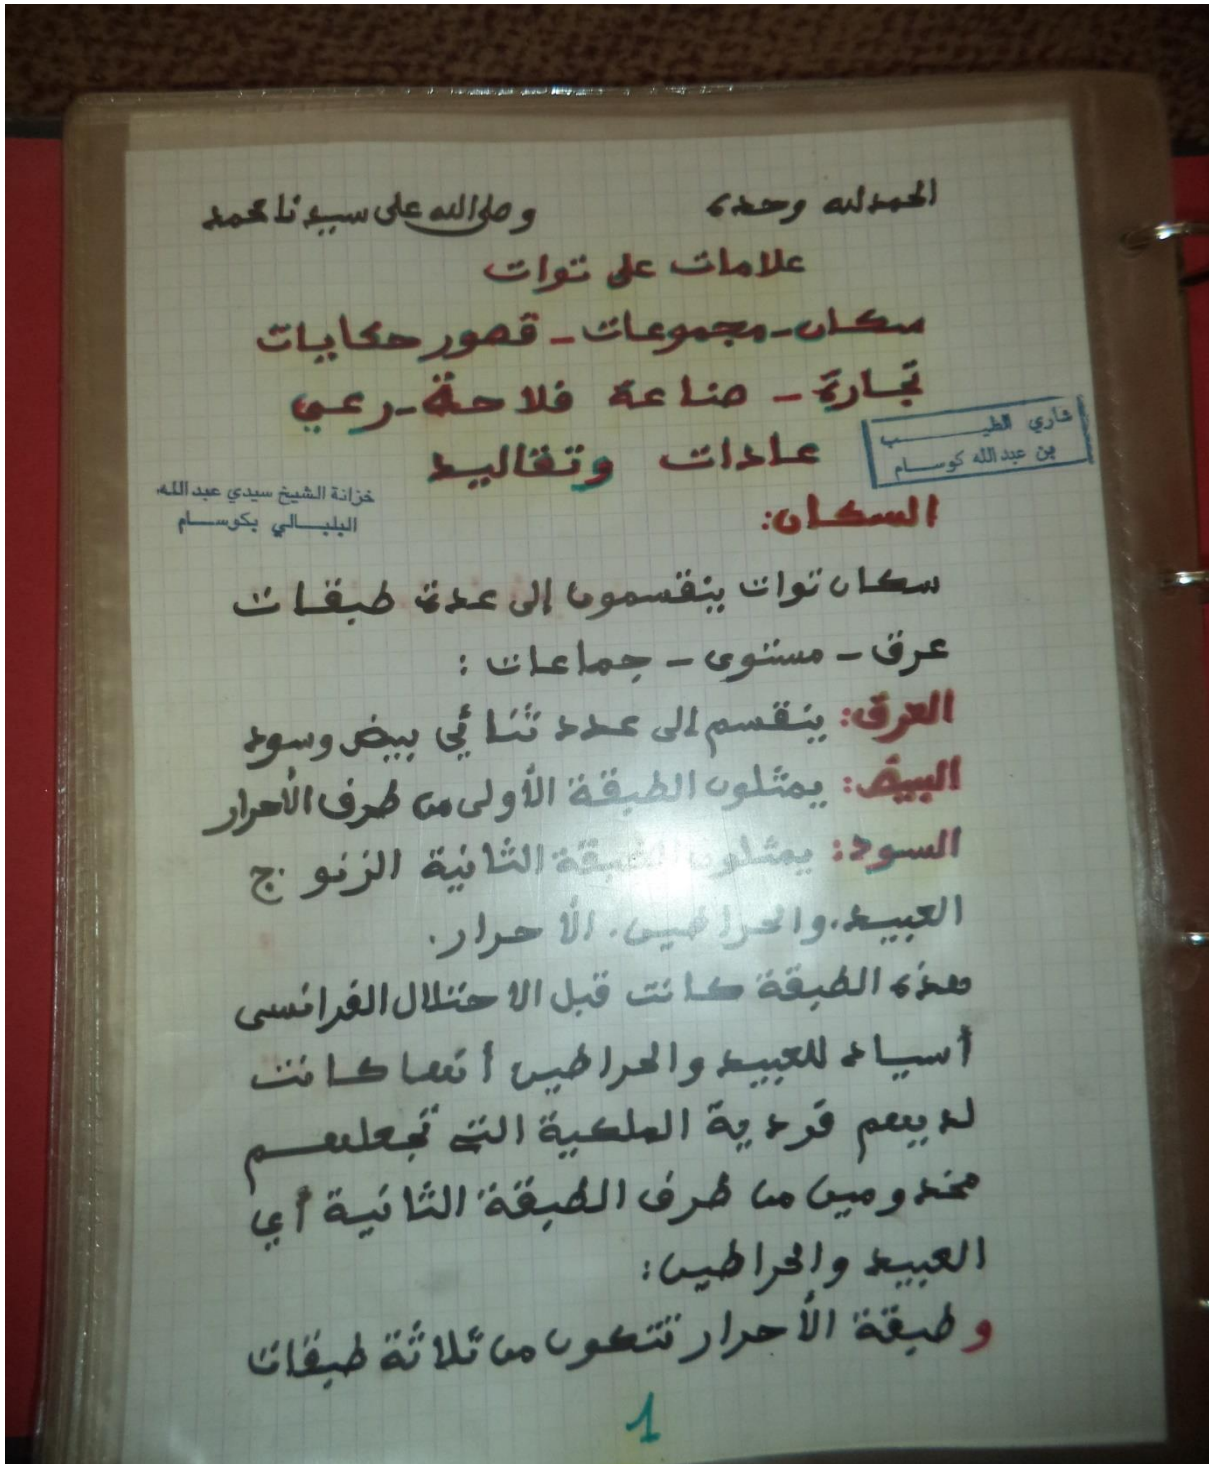 الحمد لله وحده وصلى الله على سيدنا محمد
علامات على توات
سكان - مجموعات - قصور حكايات
تجارة - صناعة فلاحة - رعي
عادات وتقاليد
شاري الطيب
بن عبد الله كوسام
خزانة الشيخ سيدي عبد الله
البلبالي بكوسام
السكان:
سكان توات ينقسمون إلى عدة طبقات
عرق - مستوى - جماعات:
العرق: ينقسم إلى عدد ثنائي بيض وسود
البيض: يمثلون الطبقة الأولى من طرف الأحرار
السود: يمثلون الطبقة الثانية الزنوج
العبيد. والحراطين. الأحرار.
هذه الطبقة كانت قبل الاحتلال الفرانسي
أسياد للعبيد والحراطين أنها كانت
لديهم فردية الملكية التي تجعلهم
مخدومين من طرف الطبقة الثانية أي
العبيد والحراطين:
وطبقة الأحرار تتكون من ثلاثة طبقات
1